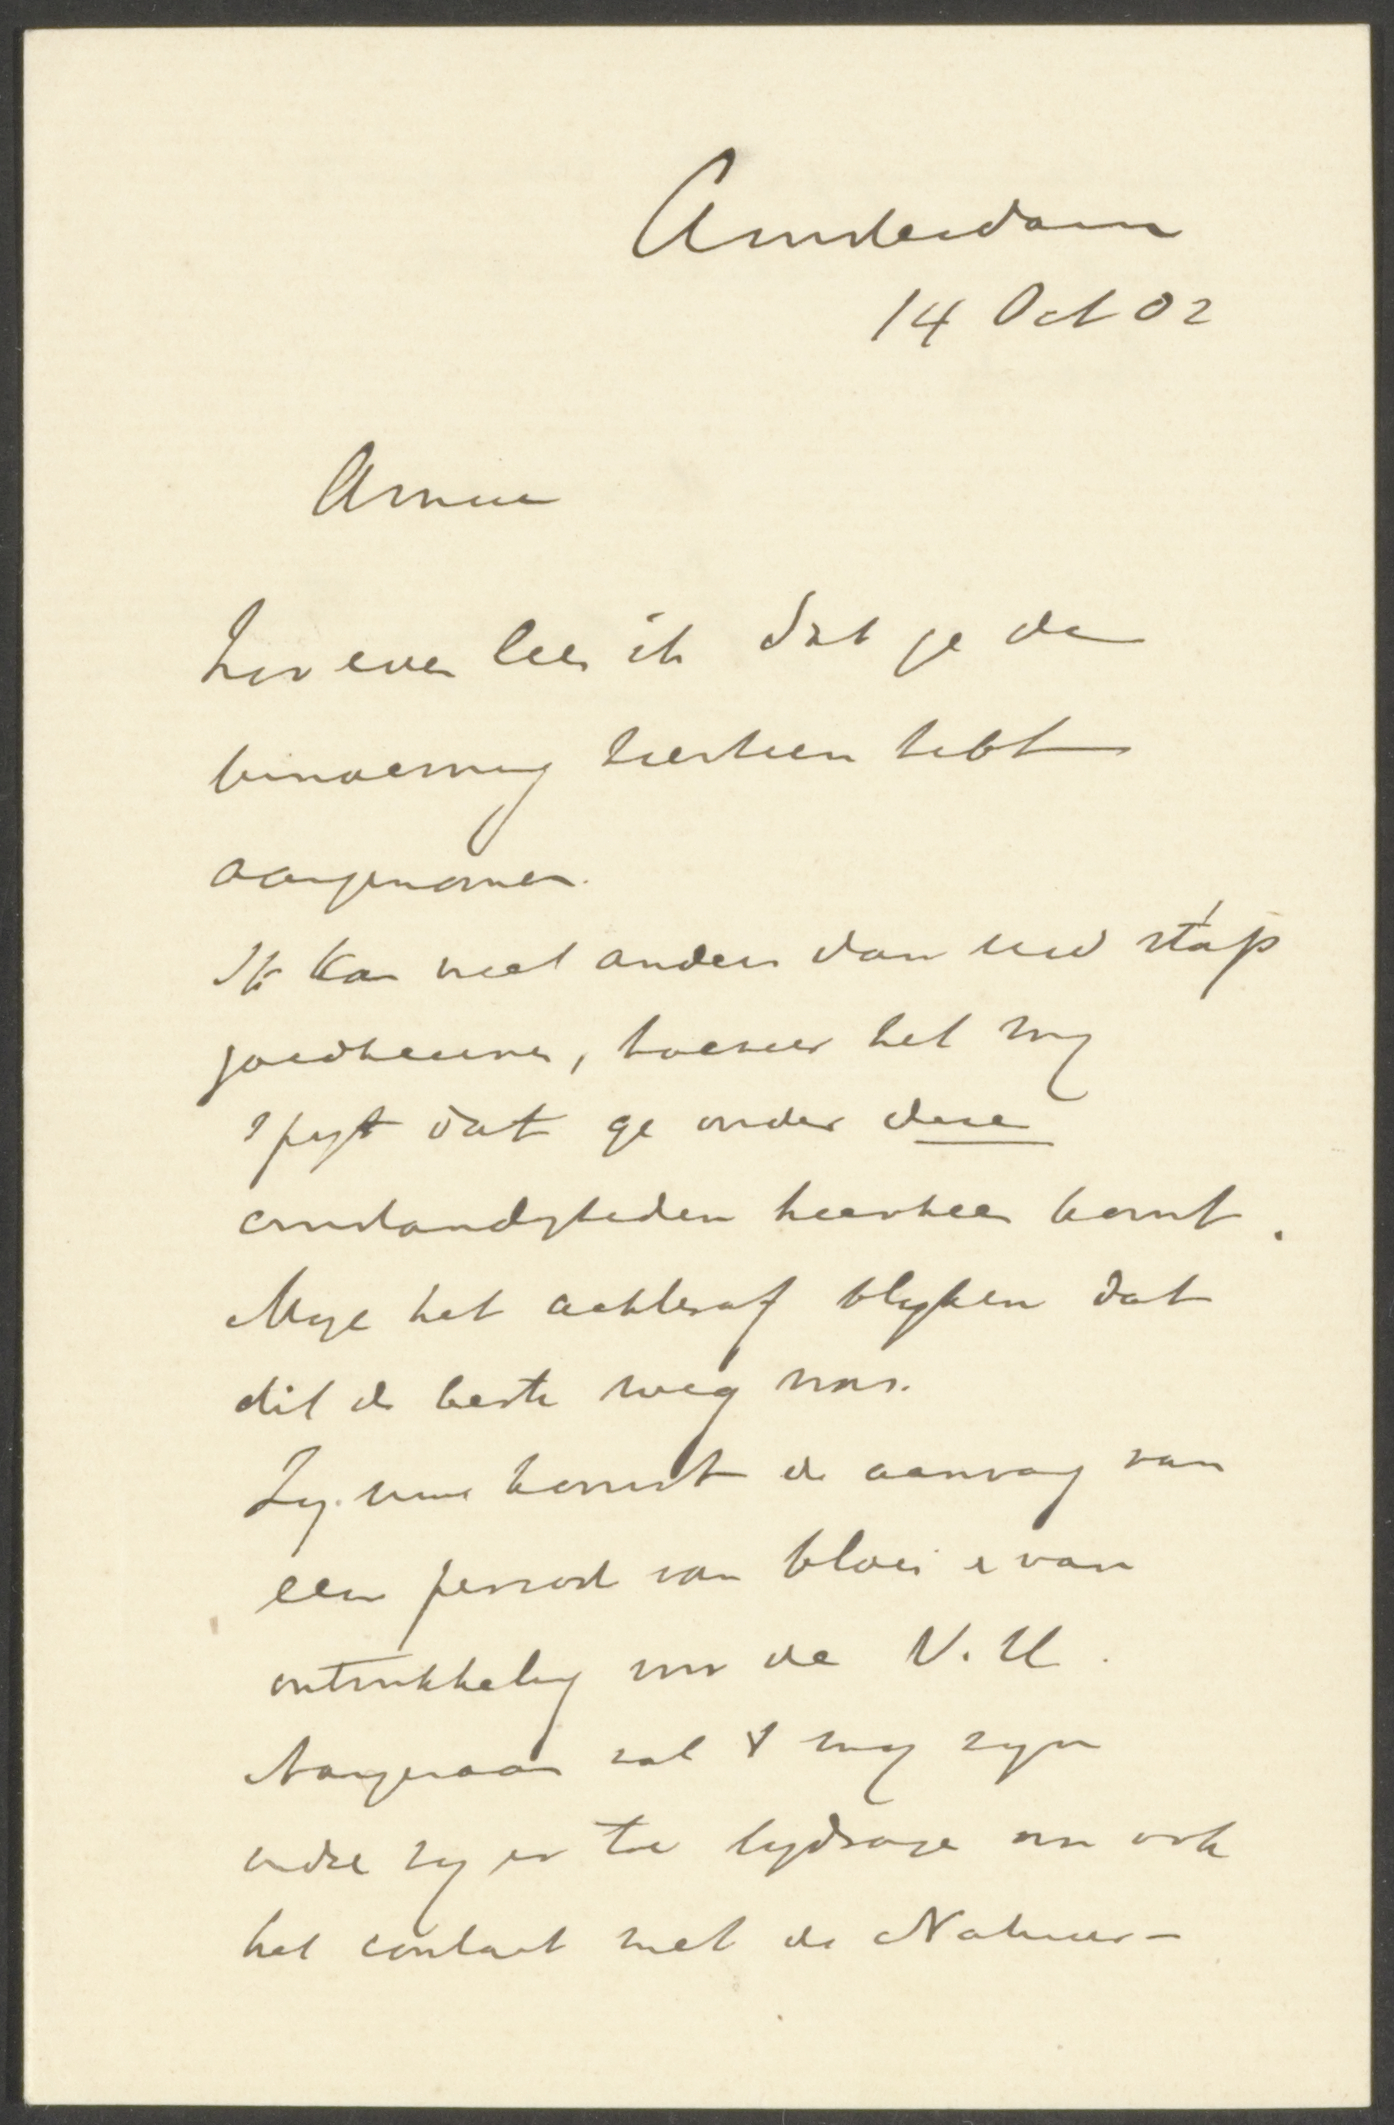 Amsterdam
14 Oct 02
Amice
Zoo even lees ik dat je de
benoeming hierheen hebt
aangenomen.
Ik kan niet anders dan uw stap
goedkeuren, hoezeer het my
spyt dat ge onder deze
omstandigheden hierheen komt.
Moge het achteraf blyken dat
dit de beste weg was.
Zy uwe komst de aanvang van
een period van bloei e van
ontwikkeling voor de V. U.
Aangenaam zal t my zyn
indie zy er toe bydrage om ook
het contact met de Natuur-